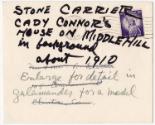 STONE CARRIER
CADY CONNOR'S
HOUSE ON MIDDLE HILL
in background
about 1910
Enlarge for detail in
galamander for a model